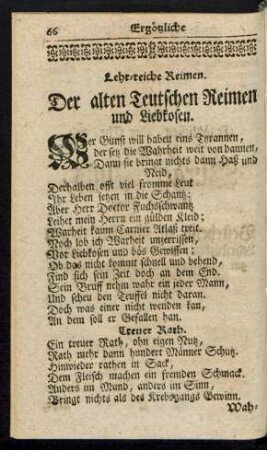 66 Ergötzliche
Lehr-reiche Reimen.
Der alten Teutschen Reimen
und Liebkosen.
Wer Gunst will haben eins Tyrannen,
der setz die Wahrheit weit von dannen,
Dann sie bringt nichts dann Haß und
Neid,
Derhalben offt viel fromme Leut
Ihr Leben setzen in die Schantz;
Aber Herr Doctor Fuchsschwantz
Leihet mein Herrn ein gülden Kleid;
Warheit kaum Carnier Atlaß treit.
Noch lob ich Warheit unzerrissen,
Vor Liebkosen und bös Gewissen;
Ob das nicht kommt schnell und behend,
Find sich sein Zeit doch an dem End.
Sein Bruff trehn wahr ein jeder Mann,
Und scheu den Teuffel nicht daran.
Doch was einer nicht wenden kan,
An dem soll er Gefallen han.
Treuer Rath.
Ein treuer Rath, ohn eigen Nutz,
Rath mehr dann hundert Männer Schutz.
Hinwieder rathen in Sack,
Dem Fleisch machen ein fremden Schmack.
Anders im Mund, anders im Sinn,
Bringt nichts als des Krebsgangs Gewinn.
Wah-